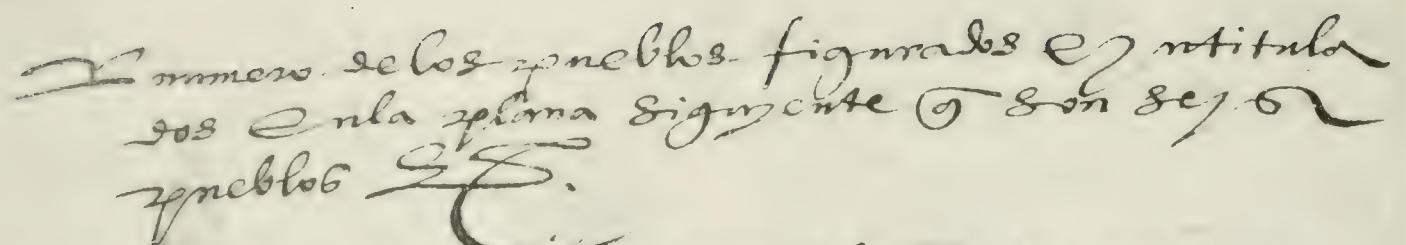 El numero de los pueblos figurados E yntitula
dos En la plana siguyente q̃ son seys
pueblos